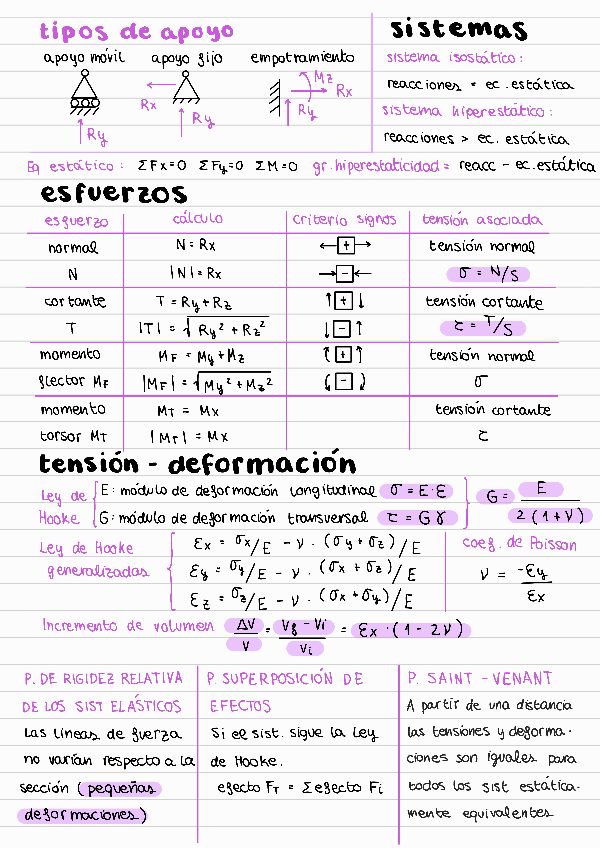 tipos de apoyo
apoyo móvil apoyo fijo empotramiento
Rx Mz Rx
Ry Ry Ry
sistemas
sistema isostático:
reacciones = ec. estática
sistema hiperestático:
reacciones > ec. estática
Eq estático: ΣFx=0 ΣFy=0 ΣM=0 gr. hiperestaticidad = reacc - ec. estática
esfuerzos
esfuerzo cálculo criterio signos tensión asociada
normal N = Rx ←+→ tensión normal
N |N| = Rx →-← σ = N/S
cortante T = Ry + Rz ↑+↓ tensión cortante
T |T| = √Ry² + Rz² ↓-↑ τ = T/S
momento MF = My + Mz + tensión normal
flector MF |MF| = √My² + Mz² - σ
momento MT = Mx tensión cortante
torsor MT |MT| = Mx τ
tensión - deformación
Ley de Hooke
E: módulo de deformación longitudinal σ = E·ε
G: módulo de deformación transversal τ = Gγ
G = E / 2(1+ν)
Ley de Hooke
generalizadas
εx = σx/E - ν · (σy + σz)/E
εy = σy/E - ν · (σx + σz)/E
εz = σz/E - ν · (σx + σy)/E
coef. de Poisson
ν = -εy / εx
Incremento de volumen ΔV/V = Vf - Vi / Vi = εx · (1 - 2ν)
P. DE RIGIDEZ RELATIVA
DE LOS SIST ELÁSTICOS
Las líneas de fuerza
no varían respecto a la
sección (pequeñas
deformaciones)
P. SUPERPOSICIÓN DE
EFECTOS
Si el sist. sigue la ley
de Hooke.
efecto FT = Σ efecto Fi
P. SAINT - VENANT
A partir de una distancia
las tensiones y deforma-
ciones son iguales para
todos los sist estática-
mente equivalentes